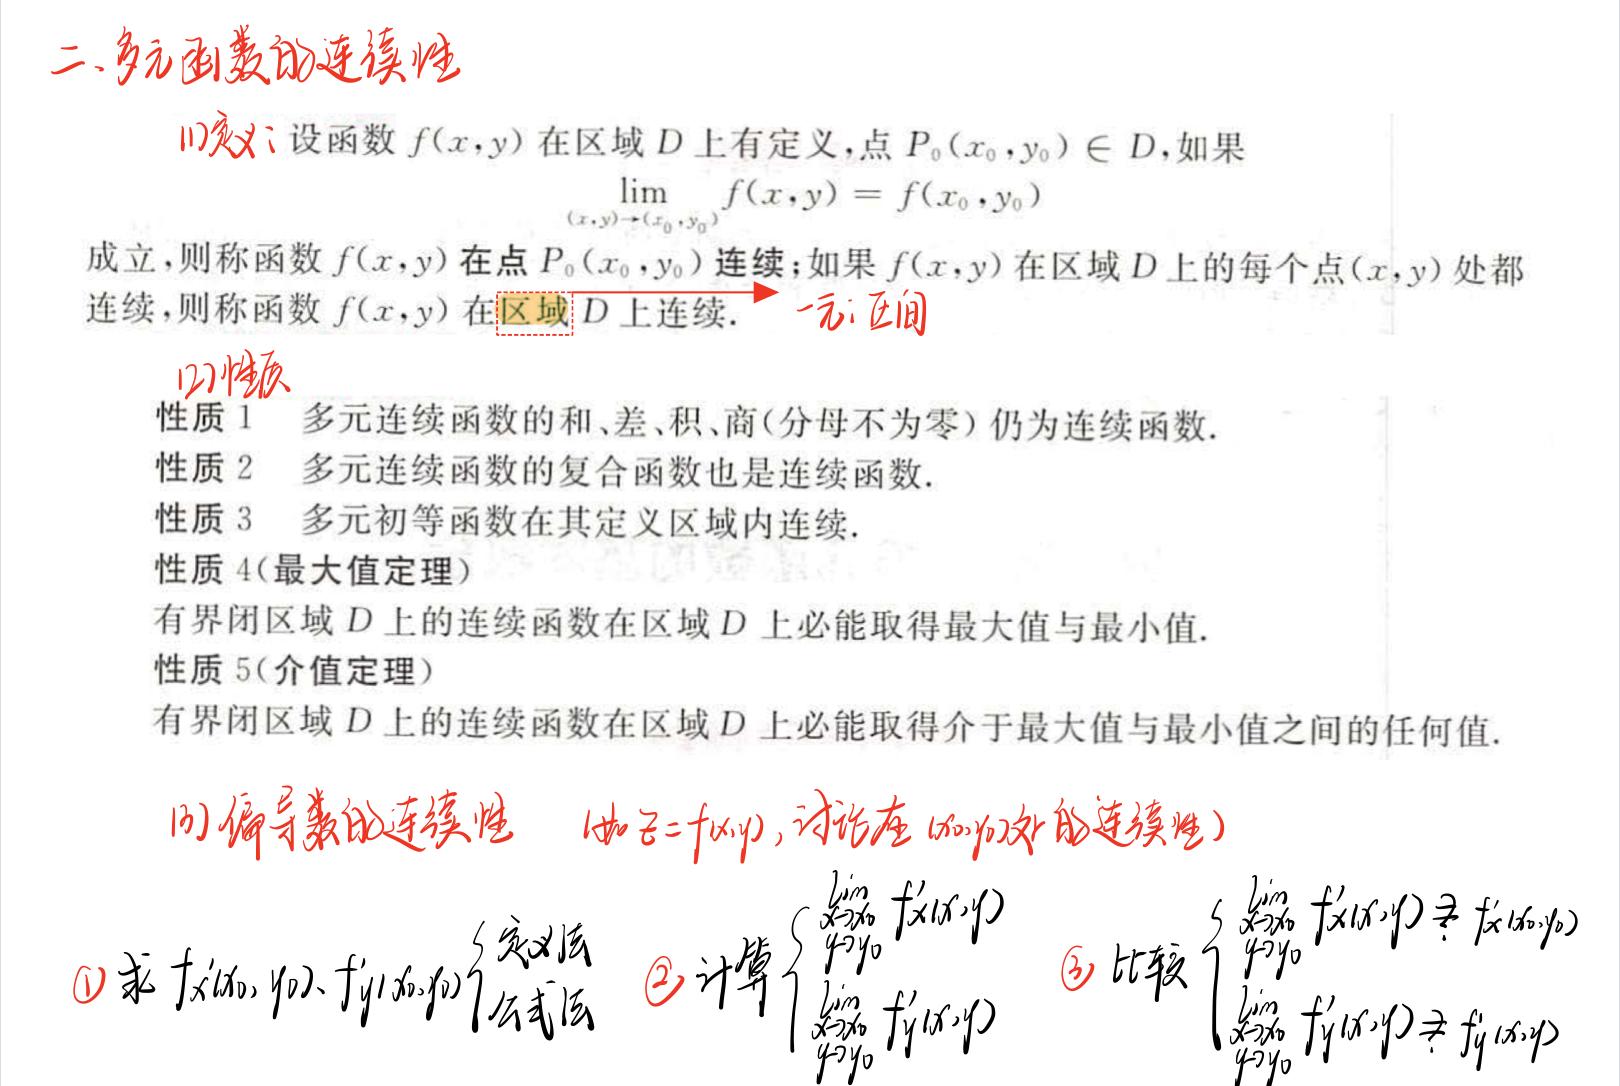 二、多元函数的连续性
(1)定义：设函数 f(x,y) 在区域 D 上有定义,点 P₀(x₀,y₀) ∈ D,如果
lim f(x,y) = f(x₀,y₀)
(x,y)→(x₀,y₀)
成立,则称函数 f(x,y) 在点 P₀(x₀,y₀) 连续;如果 f(x,y) 在区域 D 上的每个点(x,y) 处都
连续,则称函数 f(x,y) 在区域 D 上连续. 一元：区间
(2)性质
性质 1 多元连续函数的和、差、积、商(分母不为零) 仍为连续函数.
性质 2 多元连续函数的复合函数也是连续函数.
性质 3 多元初等函数在其定义区域内连续.
性质 4(最大值定理)
有界闭区域 D 上的连续函数在区域 D 上必能取得最大值与最小值.
性质 5(介值定理)
有界闭区域 D 上的连续函数在区域 D 上必能取得介于最大值与最小值之间的任何值.
(3) 偏导数的连续性 (如 z=f(x,y), 讨论在 (x₀,y₀)处的连续性)
① 求 f'x(x₀,y₀)、f'y(x₀,y₀) { 定义法 公式法
② 计算 { lim x→x₀ y→y₀ f'x(x,y) lim x→x₀ y→y₀ f'y(x,y)
③ 比较 { lim x→x₀ y→y₀ f'x(x,y) =? f'x(x₀,y₀) lim x→x₀ y→y₀ f'y(x,y) =? f'y(x,y)